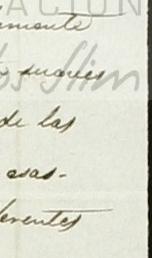 ACIÓN
amente
suaves
os Slim
de las
esas-
ferentes